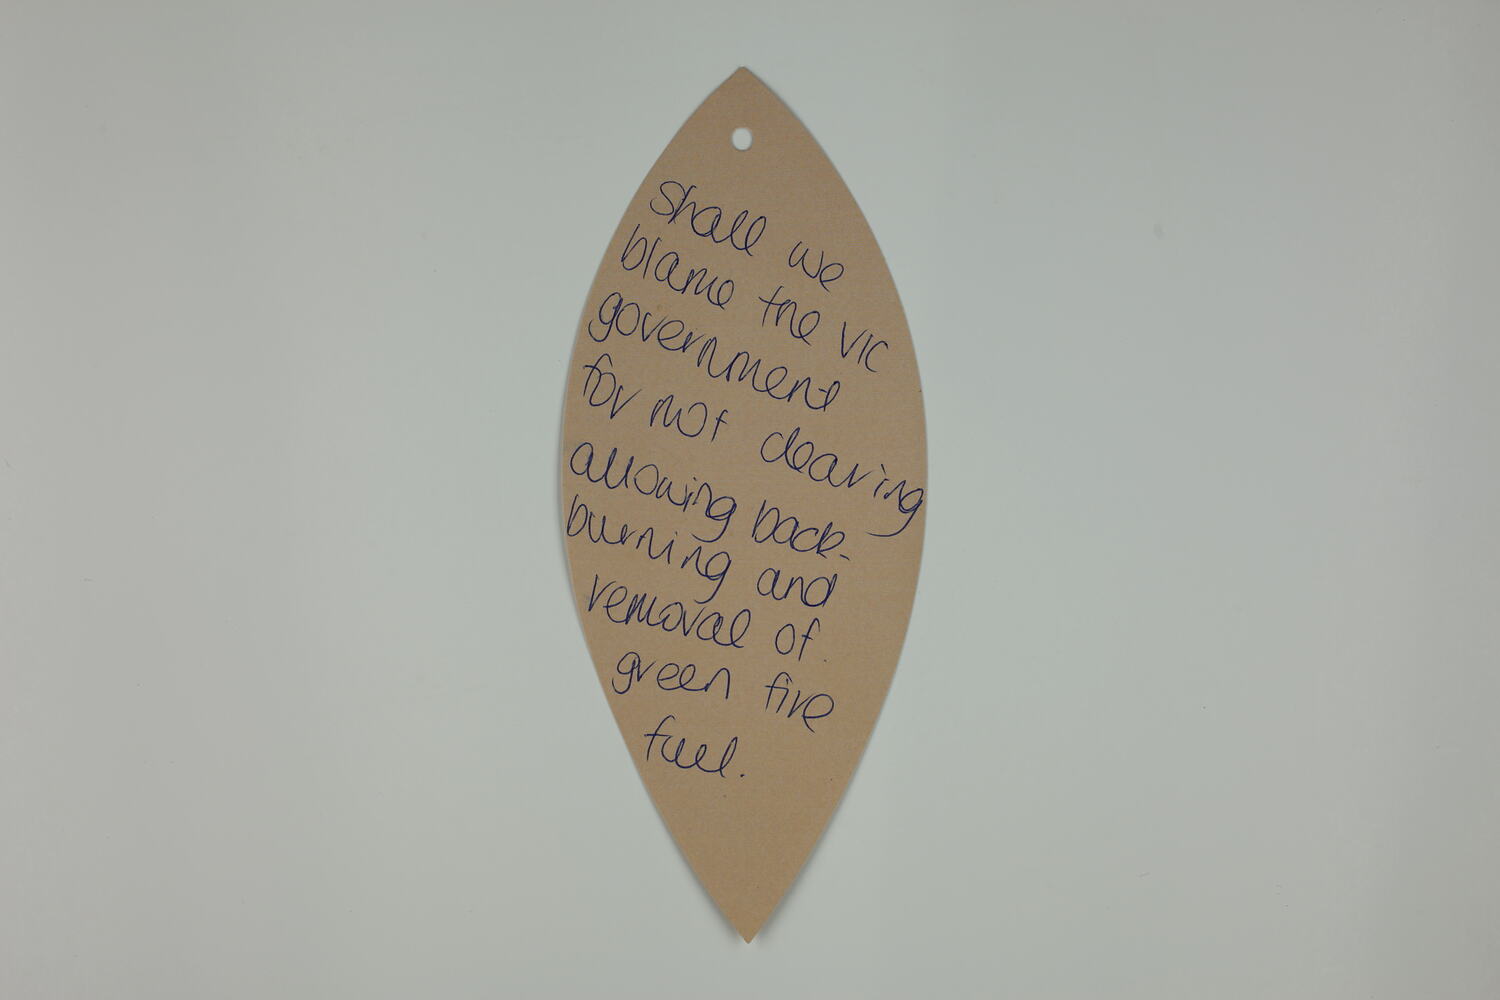 Shall we
blame the VIC
government
for not clearing
allowing back-
burning and
removal of
green fire
fuel.